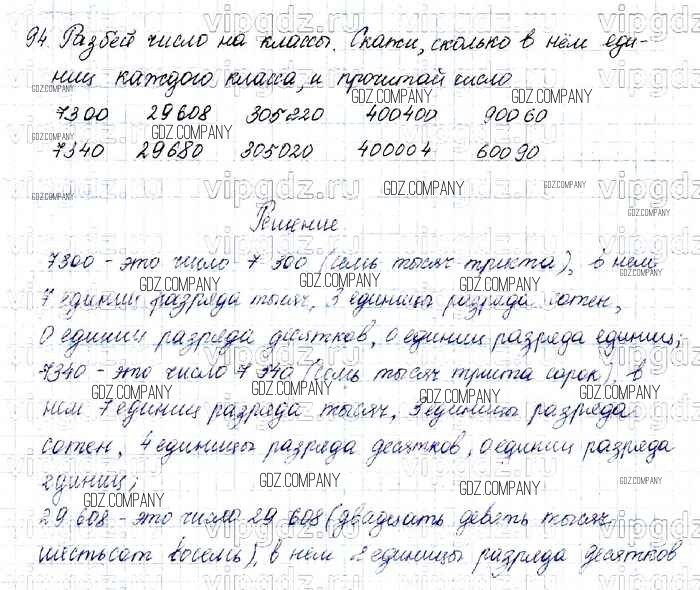 94. Разбей число на классы. Скажи, сколько в нём еди-
ниц каждого класса, и прочитай число
7300 29608 305220 400400 90060
7340 29680 305020 400004 60090
Решение
7300 - это число 7 300 (семь тысяч триста), в нем
7 единиц разряда тысяч, 3 единицы разряда сотен,
0 единиц разряда десятков, 0 единиц разряда единиц;
7340 - это число 7 340 (семь тысяч триста сорок), в
нем 7 единиц разряда тысяч, 3 единицы разряда
сотен, 4 единицы разряда десятков, 0 единиц разряда
единиц;
29 608 - это число 29 608 (двадцать девять тысяч
шестьсот восемь), в нем 2 единицы разряда десятков
vipgdz.ru
GDZ.COMPANY